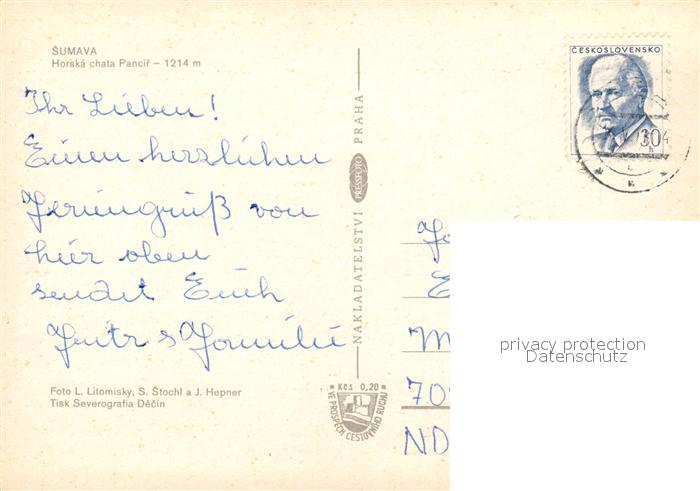 ŠUMAVA
Horská chata Pancíř – 1214 m
Ihr Lieben!
Einen herzlichen
Feriengruß von
hier oben
sendet Euch
Fritz & Familie
Foto L. Litomiský, S. Štochl a J. Hepner
Tisk Severografia Děčín
NAKLADATELSTVÍ PRESSFOTO PRAHA
Kčs 0,20
VE PROSPĚCH CESTOVNÍHO RUCHU
ČESKOSLOVENSKO
30
h
M
70
ND
privacy protection
Datenschutz